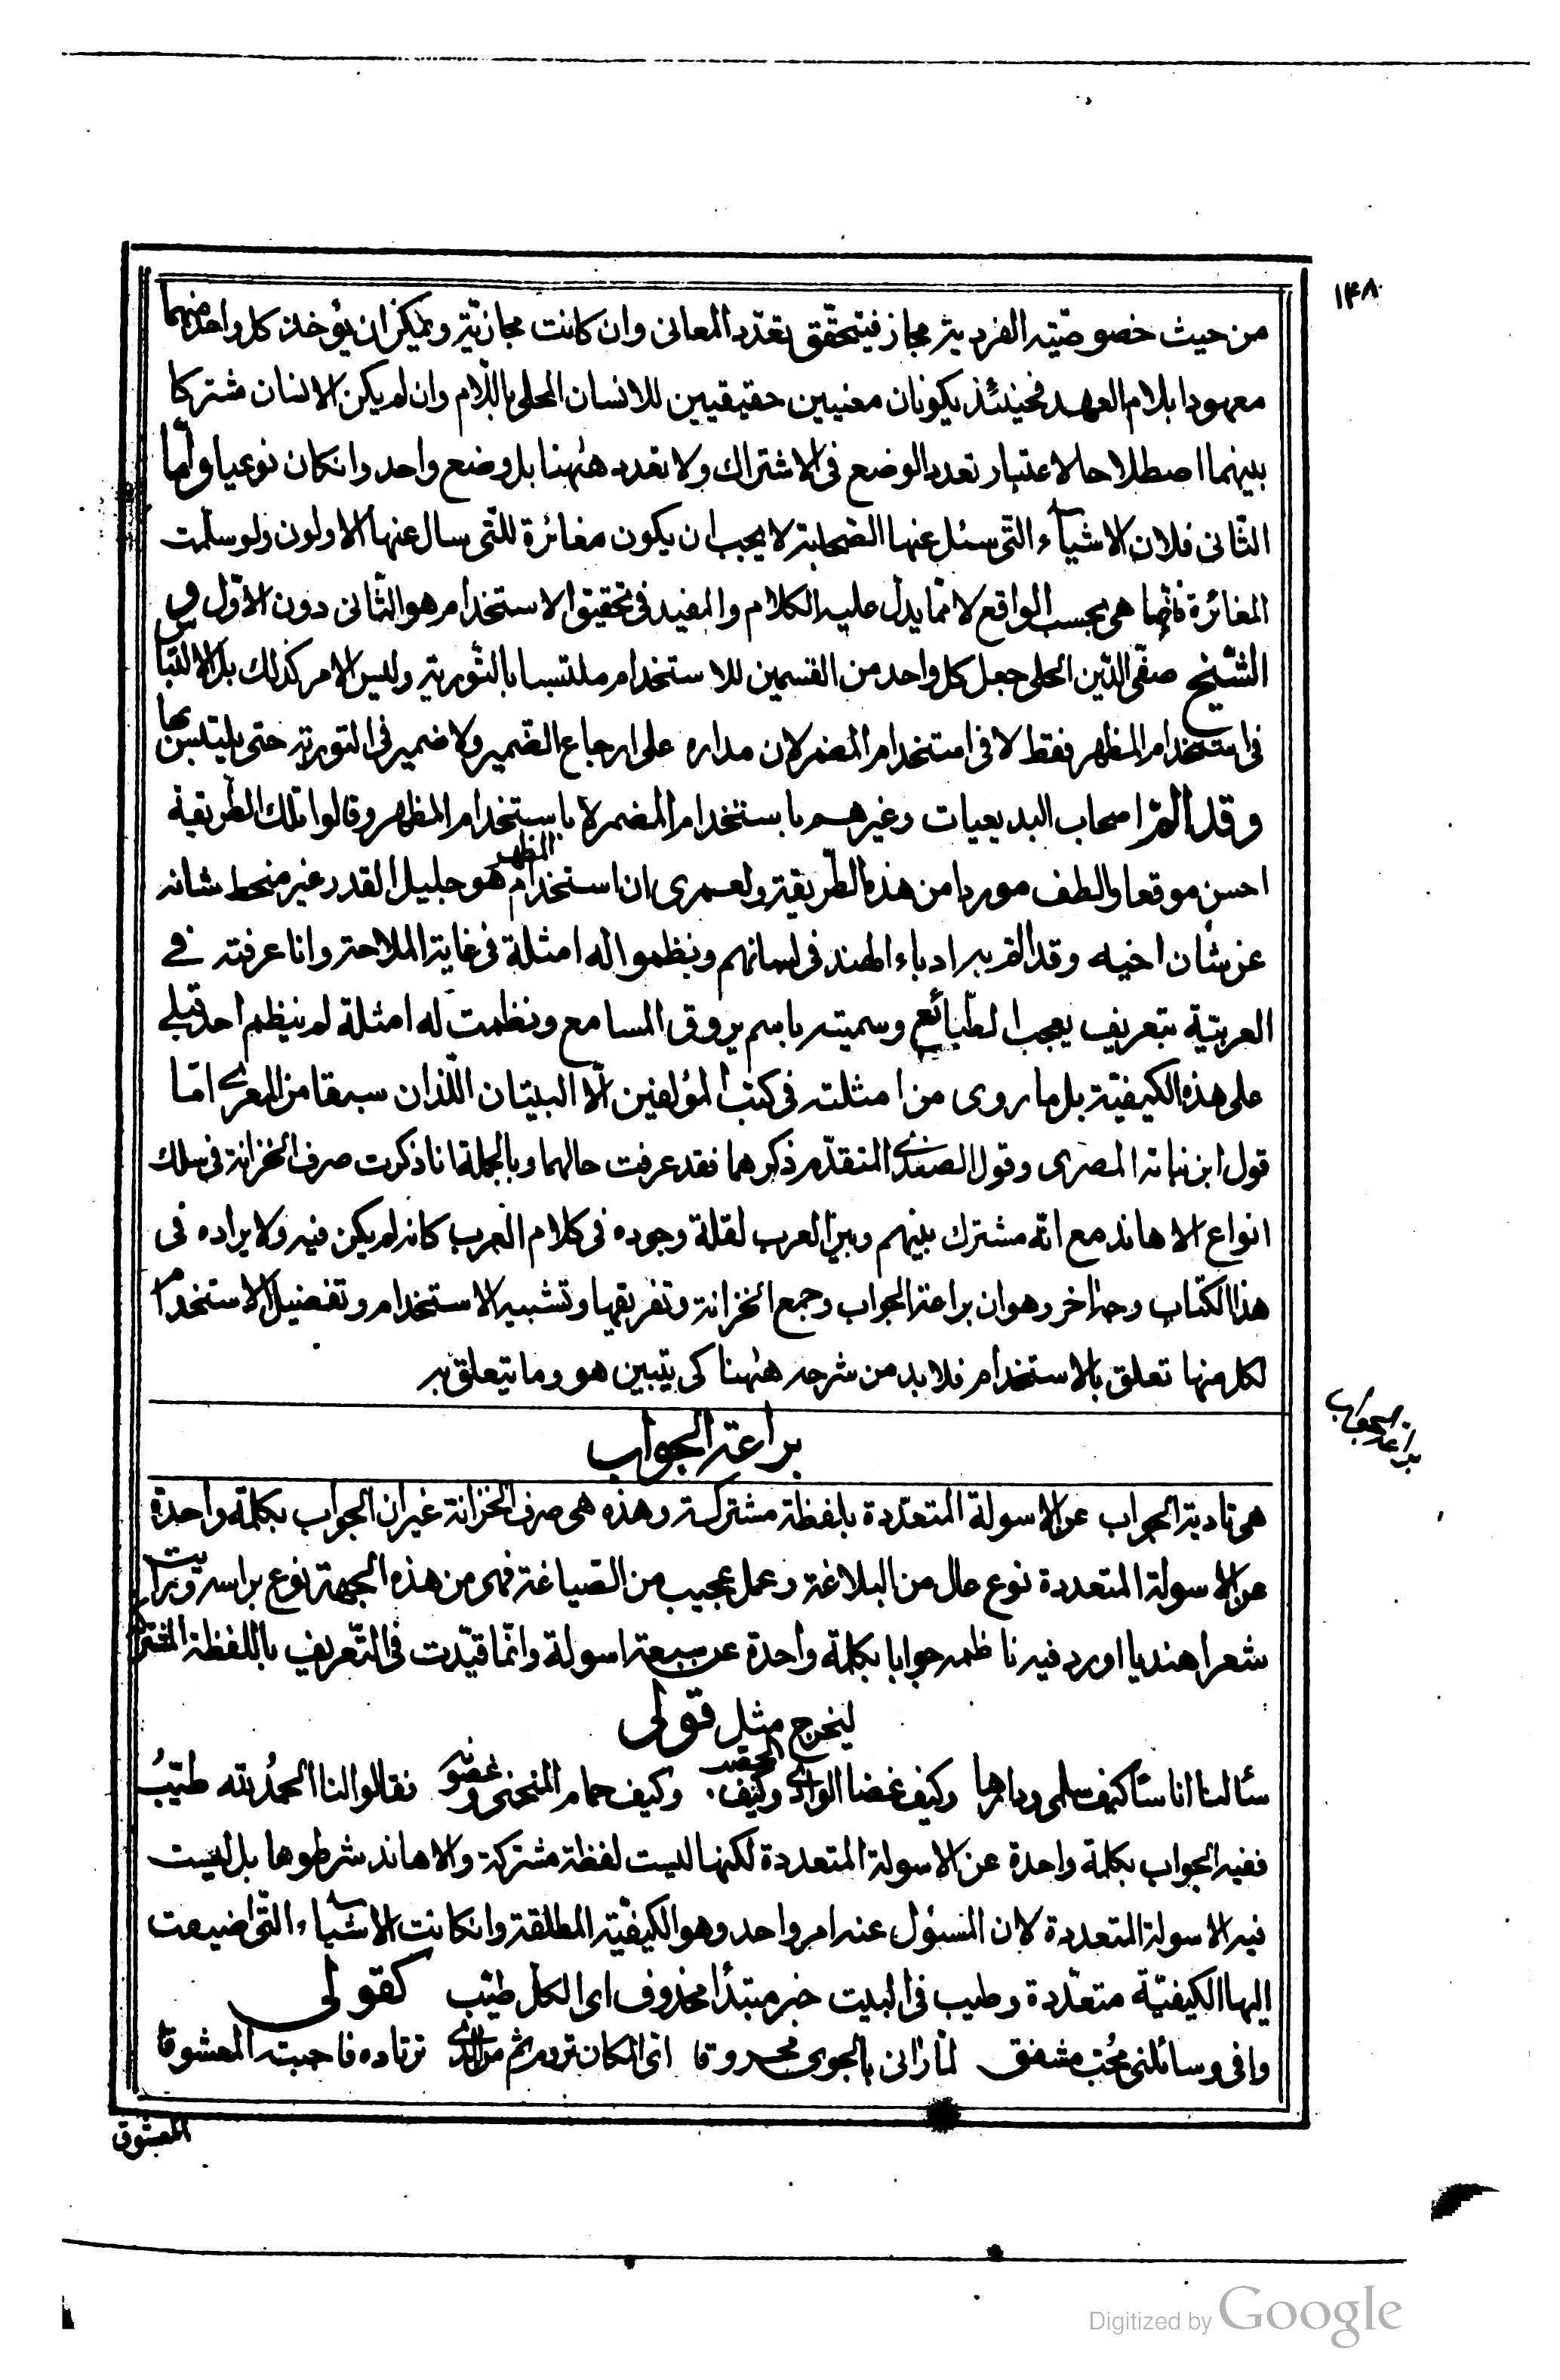 ١٤٨
من حيث خصوصيّته الفردية مجاز فيتحقّق تعدّد المعانى وان كانت مجازيّة ويمكن ان يؤخذ كل واحد منهما
معهودا بلام العهد فحينئذ يكونان معنيين حقيقيين للانسان المحلى باللّام وان لم يكن الانسان مشتركا
بينهما اصطلاحا لاعتبار تعدد الوضع فى الاشتراك ولا تعدد هٰهنا بل وضع واحد وانكان نوعيا وامّا
الثّانى فلان الاشياء التّى سئل عنها الصّحابة لا يجب ان يكون مغائرة للتّى سال عنها الاولون ولو سلّمت
المغائرة فانّما هى بحسب الواقع لا ممّا يدل عليه الكلام والمفيد فى تحقيق الاستخدام هو الثّانى دون الاوّل و
الشّيخ صفّى الدّين الحلى جعل كل واحد من القسمين للاستخدام ملتبسا بالتّورية وليس الامر كذلك بل الالتباس
فى استخدام المظهر فقط لا فى استخدام المضمر لان مداره على ارجاع الضّمير ولا ضمير فى التورية حتى يلتبس بها
وقد المّ اصحاب البديعيات وغيرهم باستخدام المضمر لا باستخدام المظهر وقالوا تلك الطّريقة
احسن موقعا والطف موردا من هذه الطّريقة ولعمرى ان استخدام المظهر هو جليل القدر غير منحط شانه
عن شان اخيه وقد الم به ادباء الهند فى لسانهم ونظموا له امثلة فى غاية الملاحة وانا عرفته فى
العربيّة بتعريف يعجب الطبائع وسميته باسم يروق المسامع ونظمت له امثلة لم ينظم احد قبلى
على هذه الكيفيّة بل ما روى من امثلته فى كتب المؤلفين الّا البيتان اللّذان سبقا من المعرى امّا
قول ابن نباته المصرى وقول الصفدى المتقدّم ذكرهما فقد عرفت حالهما وبالجملة انا ذكرت صرف الخزانة فى سلك
انواع الاهاند مع انّه مشترك بينهم وبين العرب لقلة وجوده فى كلام العرب كانه لم يكن فيه ولا يراده فى
هذا الكتاب وجه اخر وهو ان براعة الجواب وجمع الخزانة وتفريقها وتشبيه الاستخدام وتفضيل الاستخدام
لكل منها تعلق بالاستخدام فلا بد من شرحه هٰهنا كى يتبين هو وما يتعلق به
براعة الجواب
براعة الجواب
هى تادية الجواب عن الاسولة المتعدّدة بلفظة مشتركة وهذه هى صرف الخزانة غير ان الجواب بكلمة واحدة
عن الاسولة المتعددة نوع عال من البلاغة وعمل عجيب من الصّياغة فهى من هذه الجهة نوع براسه ورايت
شعرا هنديا اورد فيه ناظمه جوابا بكلمة واحدة عن سبعة اسولة وانّما قيّدت فى التّعريف باللفظة المشتركة
ليخرج مثل قولى
سألنا اناسًا كيف سلمى ودارها وكيف غضا الوادى وكيف المحصب وكيف حمام المنحنى وغصونه فقالوا لنا الحمدُ لله طيّبُ
ففيه الجواب بكلمة واحدة عن الاسولة المتعددة لكنها ليست لفظة مشتركة والاهاند شرطوها بل ليست
فيه الاسولة المتعددة لان المسئول عنه امر واحد وهو الكيفيّة المطلقة وانكانت الاشياء التّى اضيفت
اليها الكيفيّة متعدّدة وطيب فى البيت خبر مبتدأ محذوف اى الكل طيّب كقولى
وافى وسائلنى محُب مشفق لمّا رانى بالجوى محروقا اىّ المكان تروم ثم من الذى ترتاده فاجبته المعشوقا
المعشوق
Digitized by Google